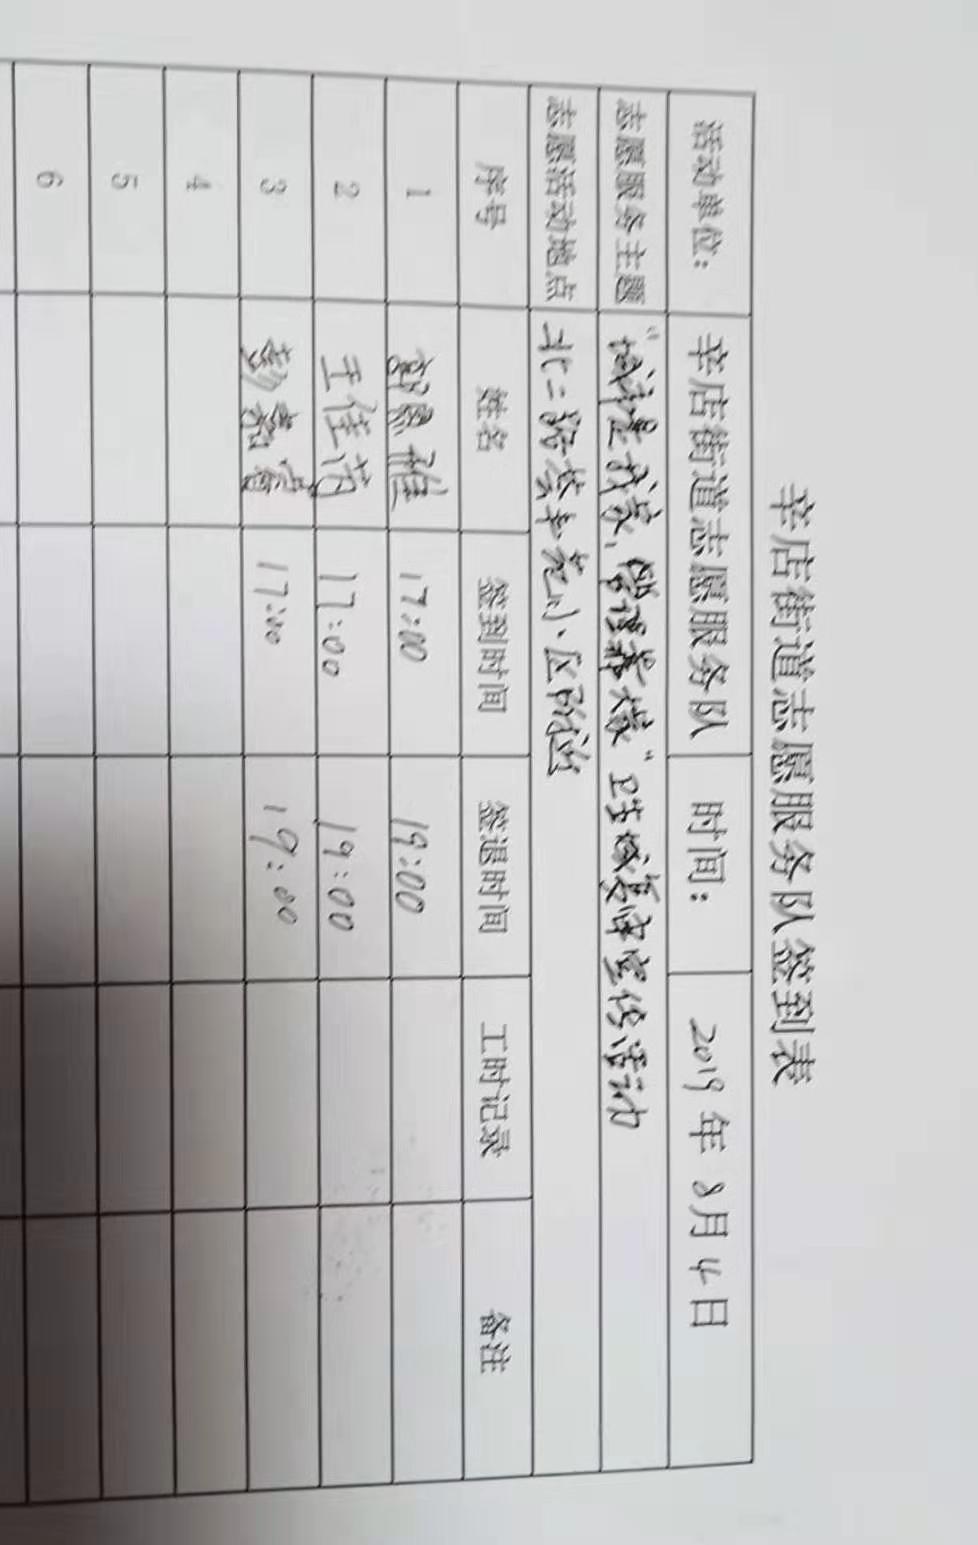 辛店街道志愿服务队签到表
活动单位： 辛店街道志愿服务队 时间： 2019年8月4日
志愿服务主题 "城市是我家，管理靠大家"卫生城复审宣传活动
志愿活动地点 北二路 小区附近
序号 姓名 签到时间 签退时间 工时记录 备注
1 雅 17:00 19:00
2 王佳茵 17:00 19:00
3 彭嘉睿 17:00 19:00
4
5
6